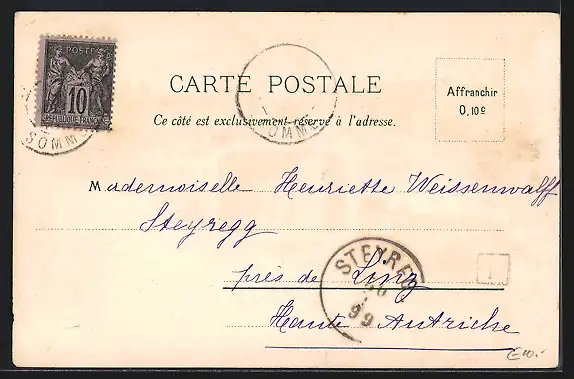 POSTE
10
REPUBLIQUE FRANÇAISE
SOMM
SOMME
CARTE POSTALE
Ce côté est exclusivement réservé à l'adresse.
Affranchir
0,10c
Mademoiselle Henriette Weissenwolff
Steyregg
près de Linz
Haute Autriche
STEYREG
99
E10.-